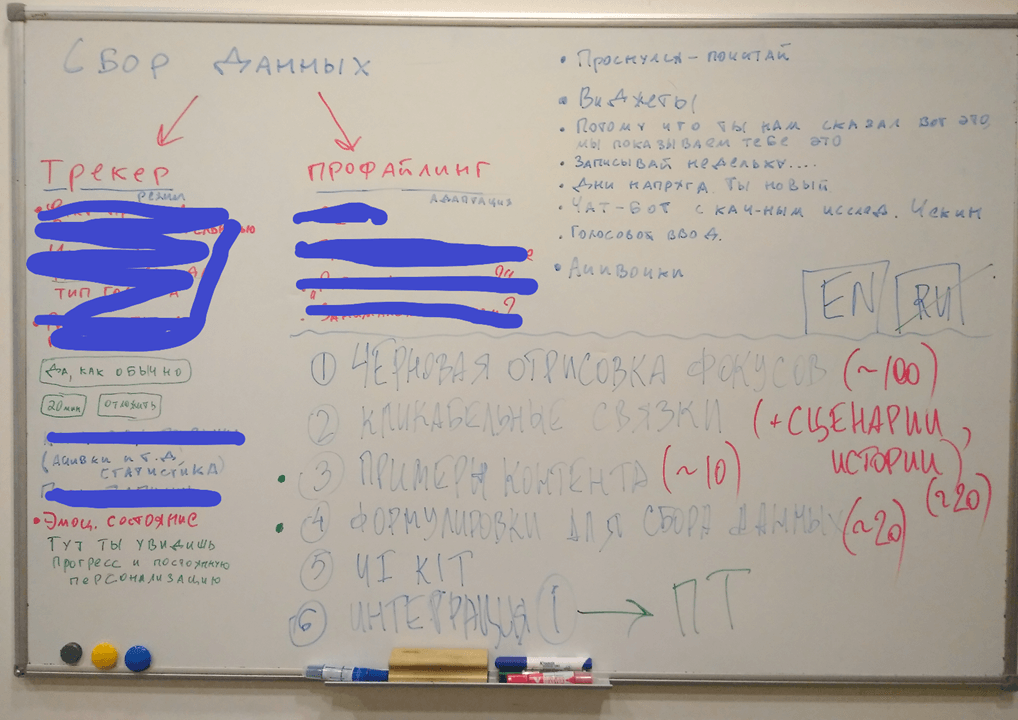 Сбор данных
Трекер
режим
тип
Да, как обычно
20 мин
отложить
(ачивки и т.д.
статистика)
• Эмоц. состояние
Тут ты увидишь
прогресс и постоянную
персонализацию
профайлинг
адаптация
• Проснулся – почитай
• Виджеты
• Потому что ты нам сказал вот это,
мы показываем тебе это
• Записывай недельку....
• Дни напряга. Ты новый
• Чат-бот с кач-ным исслед.
• Голосовой ввод.
• Ачивочки
EN RU
1 Черновая отрисовка фокусов (~100)
2 Кликабельные связки (+сценарии,
истории)
(~20)
• 3 Примеры контента (~10)
• 4 Формулировки для сбора данных (~20)
5 UI KIT
6 Интеграция 1 → ПТ